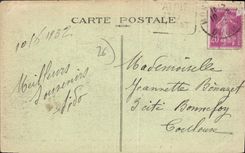 CARTE POSTALE
26
Meilleurs
Souvenirs
Mademoiselle
Jeannette Bénazet
3 cité Bonnefoy
Toulouse